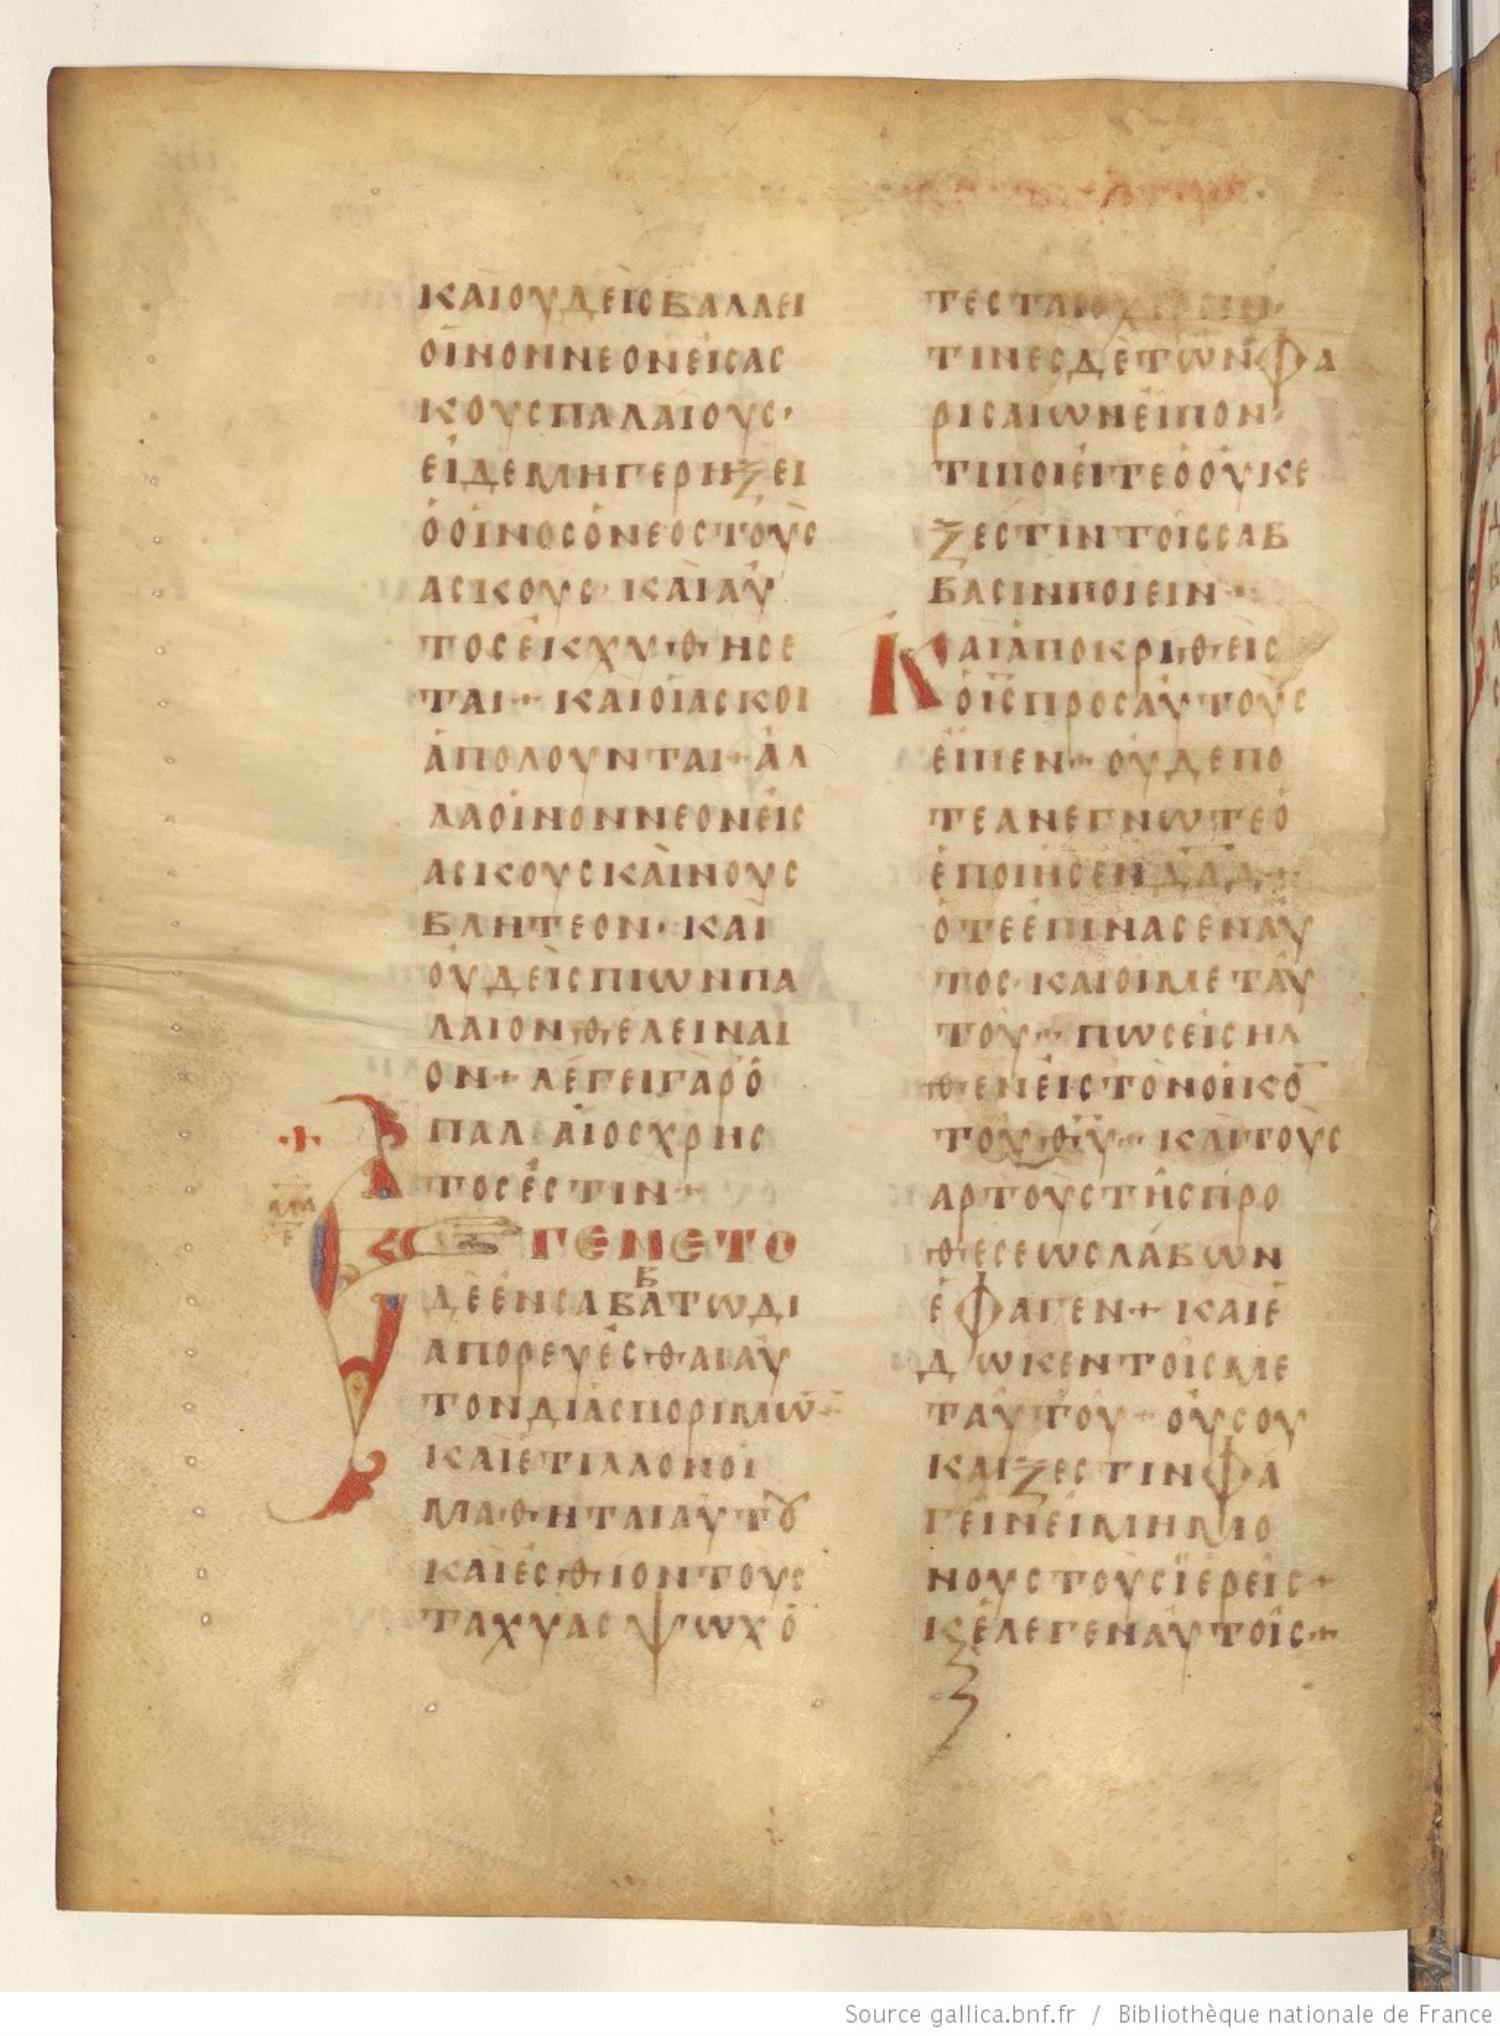 ΚΑΙΟΥΔΕΙΣΒΑΛΛΕΙ
ΟΙΝΟΝΝΕΟΝΕΙΣΑΣ
ΚΟΥΣΠΑΛΑΙΟΥΣ·
ΕΙΔΕΜΗΓΕΡΗΞΕΙ
ὉΟΙΝΟΣὉΝΕΟΣΤΟΥΣ
ΑΣΚΟΥΣ· ΚΑΙΑΥ
ΤΟΣΕΚΧΥΘΗΣΕ
ΤΑΙ+ ΚΑΙΟΙΑΣΚΟΙ
ΑΠΟΛΟΥΝΤΑΙ+ΑΛ
ΛΑΟΙΝΟΝΝΕΟΝΕΙΣ
ΑΣΚΟΥΣΚΑΙΝΟΥΣ
ΒΛΗΤΕΟΝ· ΚΑΙ
ΟΥΔΕΙΣΠΙΩΝΠΑ
ΛΑΙΟΝΘΕΛΕΙΝΑΙ
ΟΝ+ΛΕΓΕΙΓΑΡΟ
ΠΑΛΑΙΟΣΧΡΗΣ
ΤΟΣΕΣΤΙΝ+
ΕΓΕΝΕΤΟ
ΔΕΕΝΣΑΒΒΑΤΩΔΙ
ΑΠΟΡΕΥΕΣΘΑΙΑΥ
ΤΟΝΔΙΑΣΠΟΡΙΜΩ̅+
ΚΑΙΕΤΙΛΛΟΝΟΙ
ΜΑΘΗΤΑΙΑΥΤȢ
ΚΑΙΕΣΘΙΟΝΤΟΥΣ
ΤΑΧΥΑΣΨΩΧΟ
ΤΕΣΤΑΙΣΧΕΡΣΙΝ·
ΤΙΝΕΣΔΕΤΩΝΦΑ
ΡΙΣΑΙΩΝΕΙΠΟΝ·
ΤΙΠΟΙΕΙΤΕΟΟΥΚΕ
ΞΕΣΤΙΝΤΟΙΣΣΑΒ
ΒΑΣΙΝΠΟΙΕΙΝ+
ΚΑΙΑΠΟΚΡΙΘΕΙΣ
ΟΙ̅Σ̅ΠΡΟΣΑΥΤΟΥΣ
ΕΙΠΕΝ+ΟΥΔΕΠΟ
ΤΕΑΝΕΓΝΩΤΕΟ
ΕΠΟΙΗΣΕΝΔ̅Α̅Δ̅+
ΟΤΕΕΠΙΝΑΣΕΝΑΥ
ΤΟΣ·ΚΑΙΟΙΜΕΤΑΥ
ΤΟΥ+ΠΩΣΕΙΣΗΛ
ΘΕΝΕΙΣΤΟΝΟΙΚΟ̅
ΤΟΥΘ̅Υ̅+ ΚΑΙΤΟΥΣ
ΑΡΤΟΥΣΤΗΣΠΡΟ
ΘΕΣΕΩΣΛΑΒΩΝ
ΕΦΑΓΕΝ+ΚΑΙΕ
ΔΩΚΕΝΤΟΙΣΜΕ
ΤΑΥΤΟΥ+ΟΥΣΟΥ
ΚΑΙΞΕΣΤΙΝΦΑ
ΓΕΙΝΕΙΜΗΜΟ
ΝΟΥΣΤΟΥΣΪΕΡΕΙΣ+
ΚΕΛΕΓΕΝΑΥΤΟΙΣ+
Source gallica.bnf.fr / Bibliothèque nationale de France